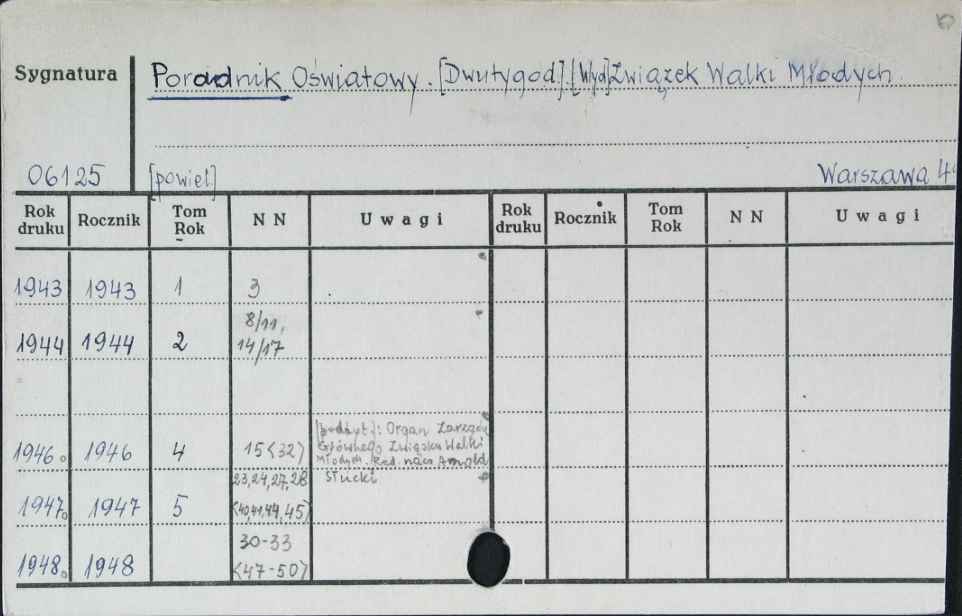 Sygnatura
Poradnik Oświatowy. [Dwutygod.] [Wyd] Związek Walki Młodych.
06125 [powiel] Warszawa
Rok druku Rocznik Tom Rok NN Uwagi Rok druku Rocznik Tom Rok NN Uwagi
1943 1943 1 3
8/11,
1944 1944 2 14/17
[podtyt.]: Organ Zarządu
Głównego Związku Walki
1946 1946 4 15<32> Młodych. Red. nacz Arnold
23,24,27,28 Słucki
1947 1947 5 <40,41,44,45>
30-33
1948 1948 <47-50>